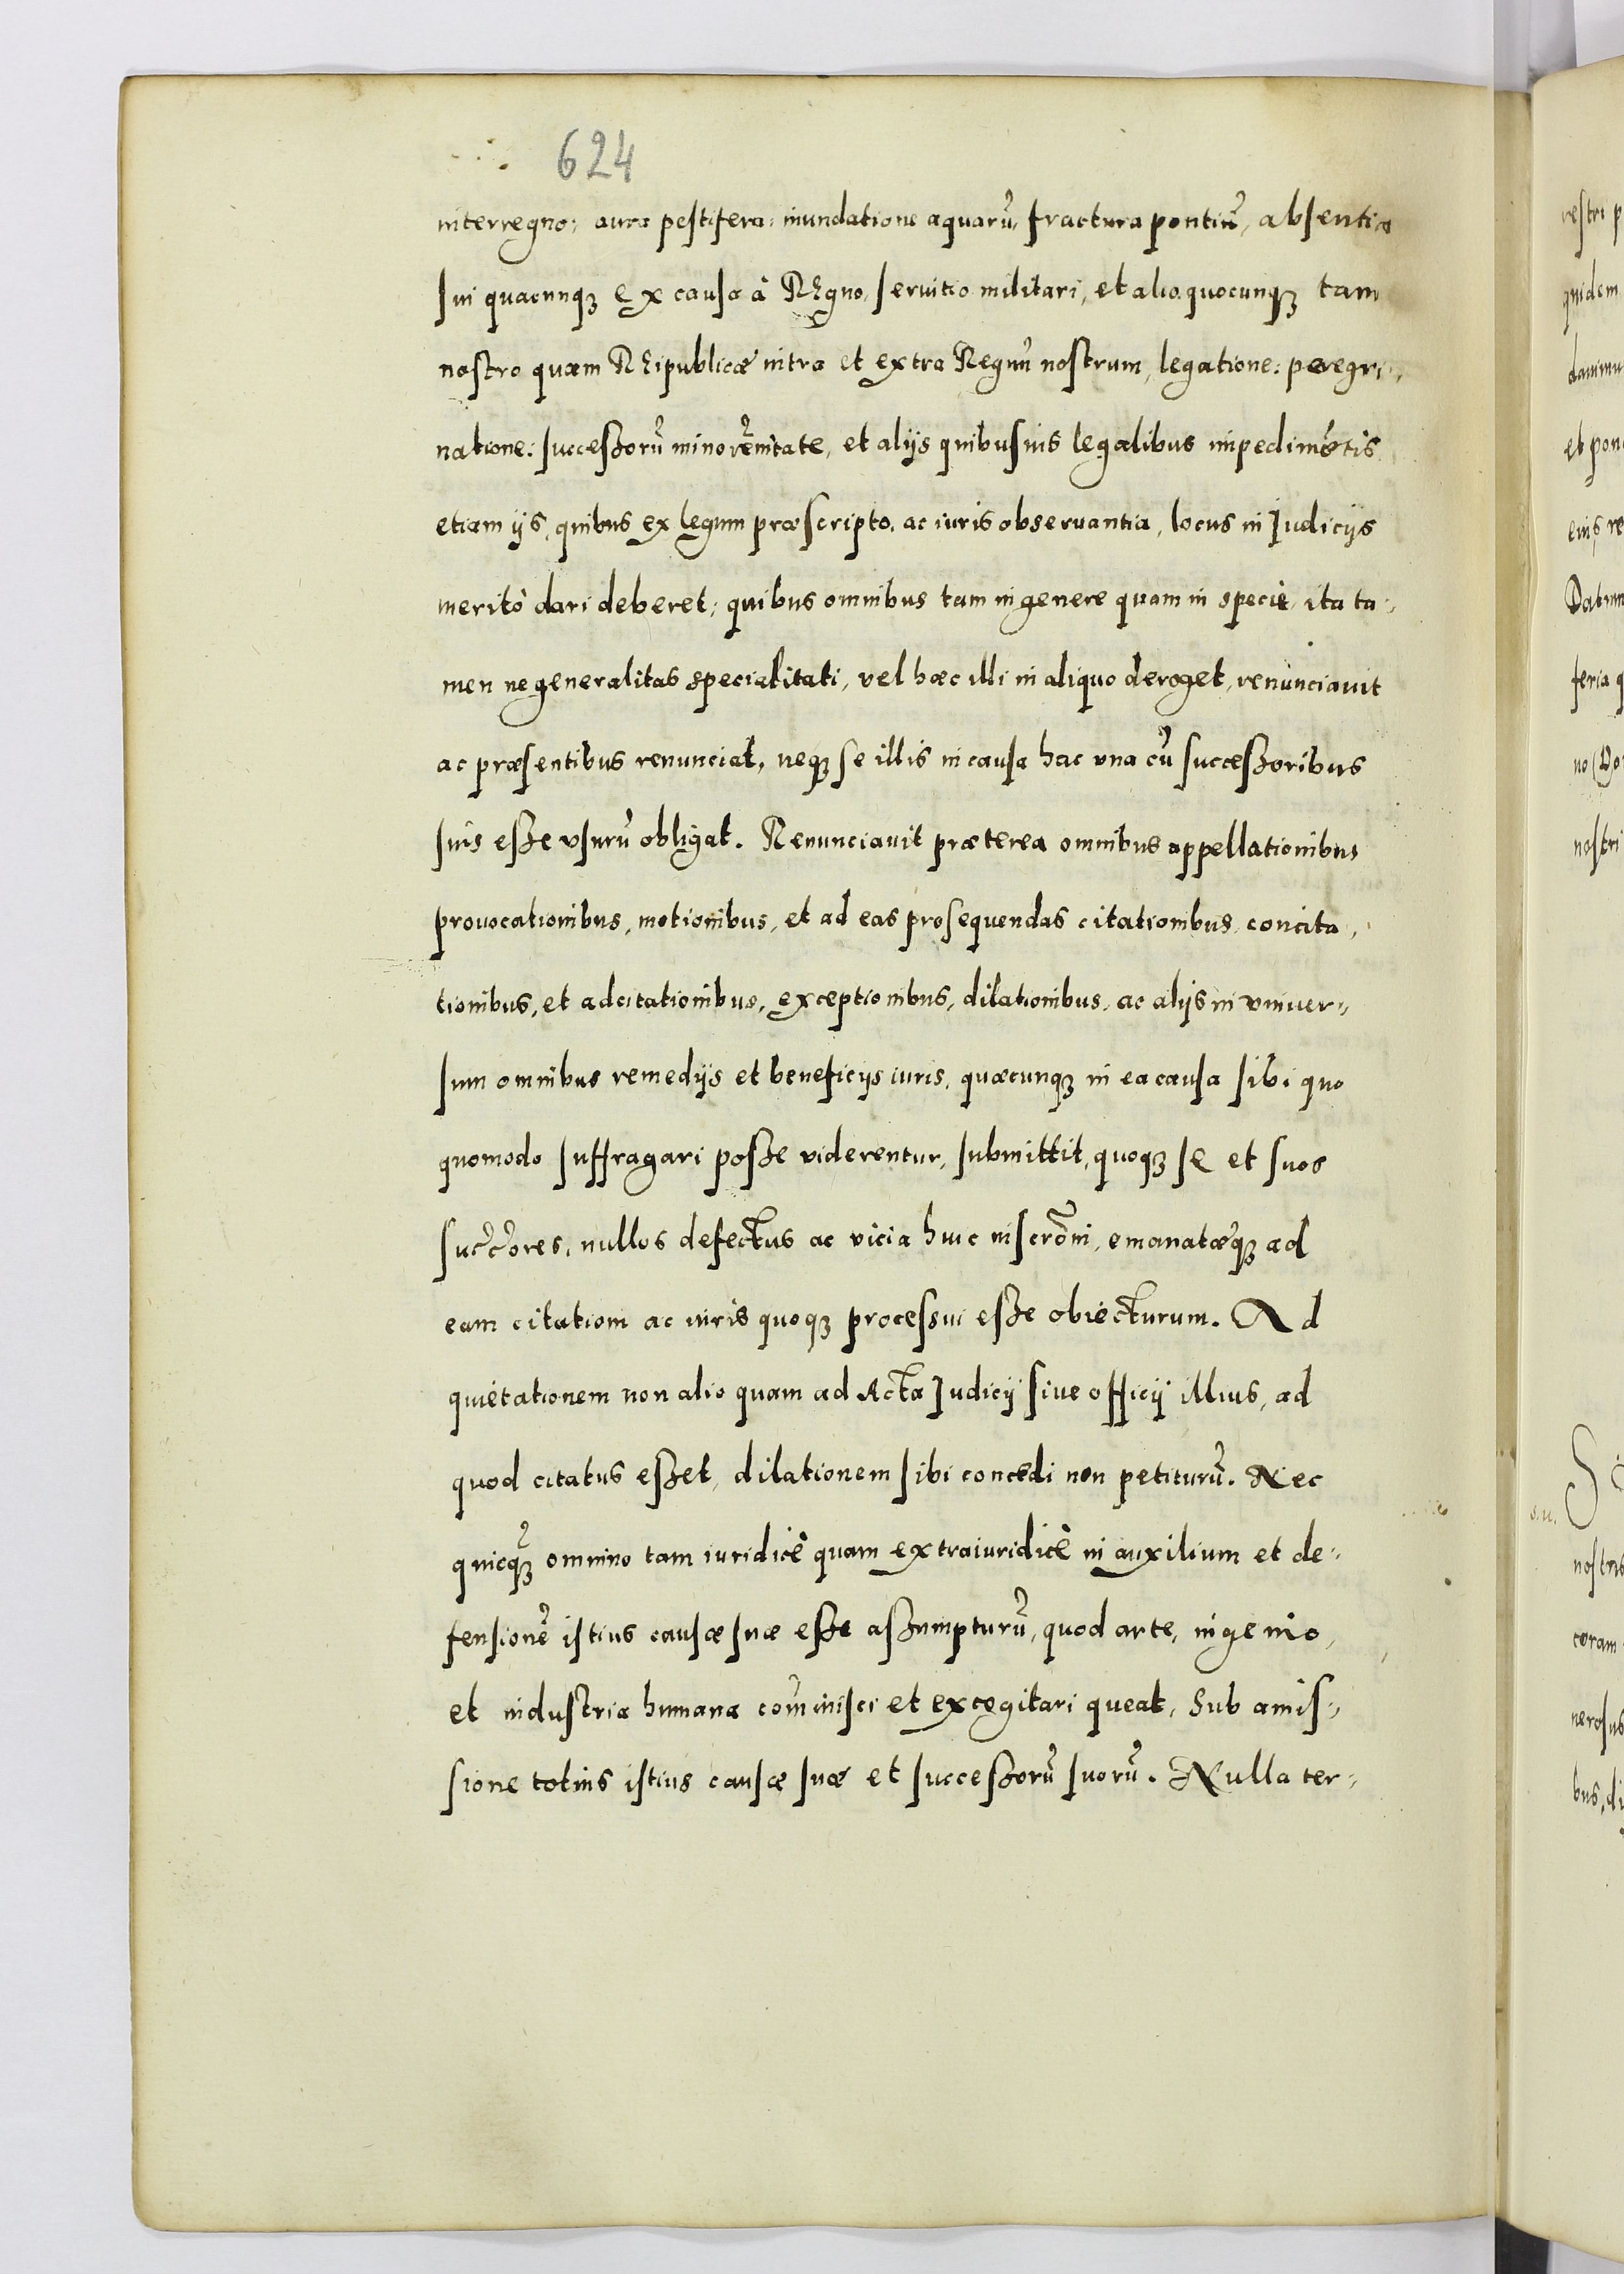 624
interregno: aura pestifera: inundatione aquarũ, fractura pontiũ, absentia
sui quacunqꝫ ex causa à Regno, seruitio militari, et alio quocunqꝫ tam
nostro quam Reipublicæ intra et extra Regnũ nostrum, legatione: peregri,,
natione: successorũ minorẽnitate, et alijs quibusuis legalibus impedimẽtis
etiam ijs, quibus ex legum præscripto, ac iuris obseruantia, locus in Judicijs
meritò dari deberet; quibus omnibus tam in genere quam in specie, ita ta,,
men ne generalitas specialitati, vel hæc illi in aliquo deroget, renunciauit
ac præsentibus renunciat, neqꝫ se illis in causa hac vna cũ successoribus
suis esse vsurũ obligat. Renunciauit præterea omnibus appellationibus
prouocationibus, motionibus, et ad eas prosequendas citationibus, concita,,
tionibus, et adcitationibus, exceptionibus, dilationibus, ac alijs in vniuer,,
sum omnibus remedijs et beneficijs iuris, quæcunqꝫ in ea causa sibi quo
quomodo suffragari posse viderentur, submittit, quoqꝫ se et suos
succ̃ores, nullos defectus ac vicia huic inscrõni, emanatæqꝫ ad
eam citationi ac iuris quoqꝫ processui esse obiecturum. Ad
quietationem non alio quam ad Acta Judicij siue officij illius, ad
quod citatus esset, dilationem sibi concedi non petiturũ. Nec
quicqꝫ omnino tam iuridicè quam extraiuridicè in auxilium et de,,
fensionẽ istius causæ suæ esse assumpturũ, quod arte, ingenio,
et industria humana com̃inisci et excogitari queat, sub amis,,
sione totius istius causæ suæ et successorũ suorũ. Nulla ter,,
restri p
quidem
et pon
eius re
Datum
feria q
nostri
s.u.
nostris
coram
nerosus
bus, di